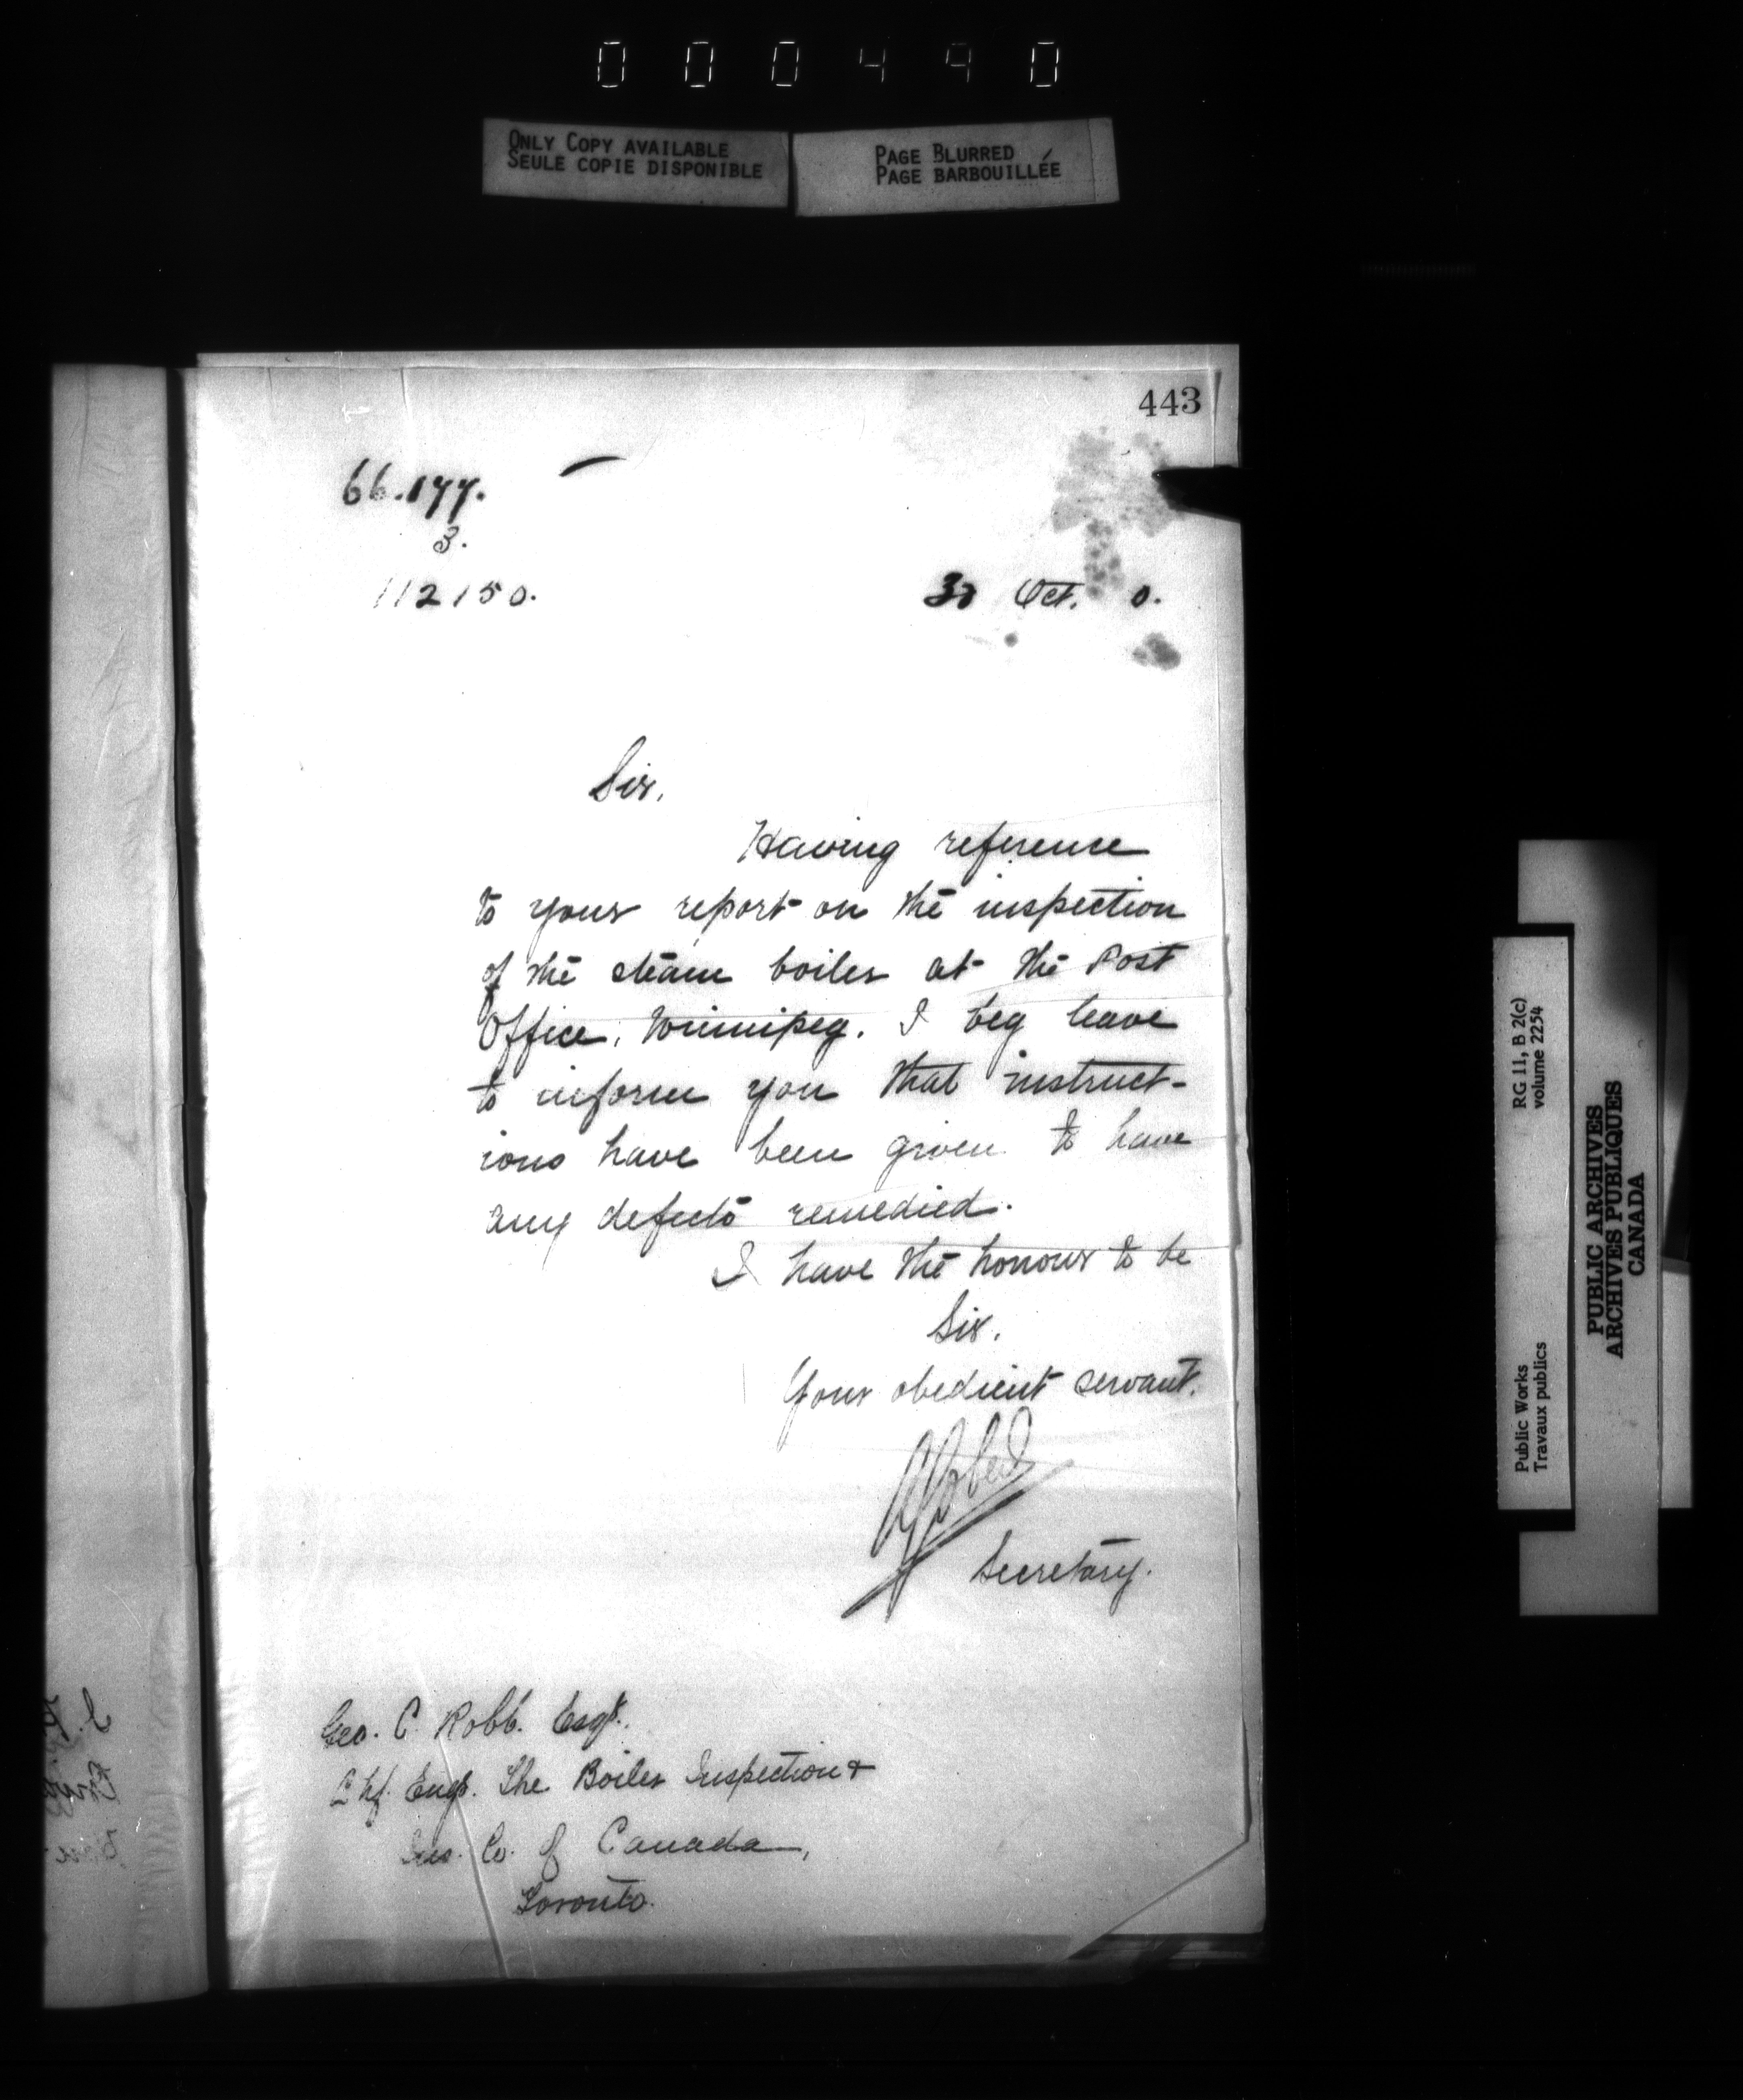 000490
ONLY COPY AVAILABLE
SEULE COPIE DISPONIBLE
PAGE BLURRED
PAGE BARBOUILLÉE
443
66.177.
3.
112150.
30 Oct. 0.
Sir,
Having reference
to your report on the inspection
of the steam boiler at the Post
Office, Winnipeg. I beg leave
to inform you that instruct-
ions have been given to have
any defects remedied.
I have the honour to be
Sir.
Your obedient servant.
Secretary.
Geo. C. Robb. Esqr.
Chf. Engr. The Boiler Inspection &
Ins. Co. of Canada,
Toronto.
RG 11, B 2(c)
volume 2254
Public Works
Travaux publics
PUBLIC ARCHIVES
ARCHIVES PUBLIQUES
CANADA